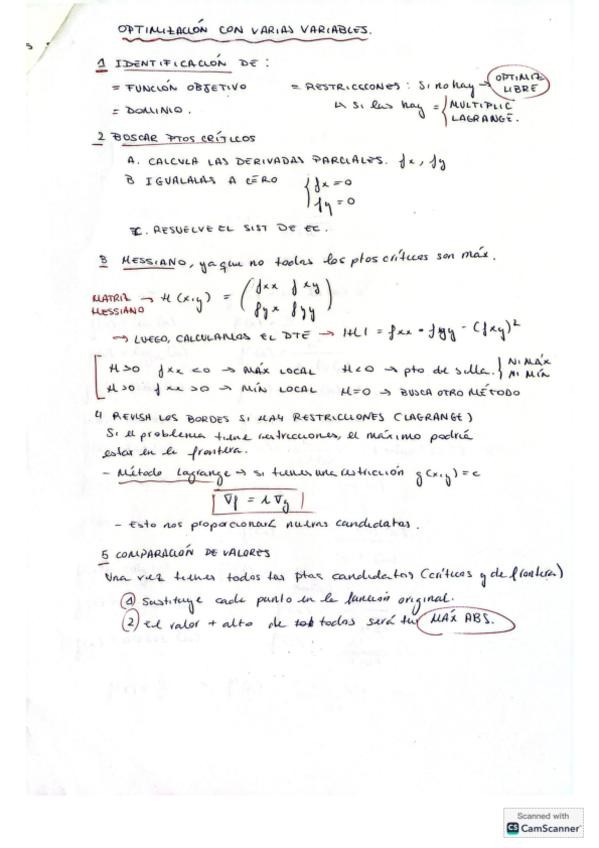 OPTIMIZACIÓN CON VARIAS VARIABLES.
1 IDENTIFICACIÓN DE :
= FUNCIÓN OBJETIVO = RESTRICCIONES : Si no hay → OPTIMIZ LIBRE
= DOMINIO. ↳ si las hay = { MULTIPLIC LAGRANGE.
2 BUSCAR PTOS CRÍTICOS
A. CALCULA LAS DERIVADAS PARCIALES. fx, fy
B IGUALALAS A CERO { fx = 0
fy = 0
C. RESUELVE EL SIST DE EC.
3 HESSIANO, ya que no todos los ptos críticos son máx.
MATRIZ HESSIANO → H(x,y) = ( fxx fxy
fyx fyy )
→ LUEGO, CALCULAMOS EL DTE → |H| = fxx · fyy - (fxy)²
H>0 fxx <0 → MÁX LOCAL H<0 → pto de silla. { NI MÁX
NI MÍN
H>0 fxx >0 → MÍN LOCAL H=0 → BUSCA OTRO MÉTODO
4 REVISA LOS BORDES SI HAY RESTRICCIONES (LAGRANGE)
Si el problema tiene restricciones, el máximo podría
estar en la frontera.
- Método Lagrange → si tienes una restricción g(x,y) = c
∇f = λ ∇g
- Esto nos proporcionará nuevos candidatos.
5 COMPARACIÓN DE VALORES
Una vez tienes todos los ptos candidatos (críticos y de frontera)
① Sustituye cada punto en la función original.
② El valor + alto de todos será tu MÁX ABS.
Scanned with
CS CamScanner